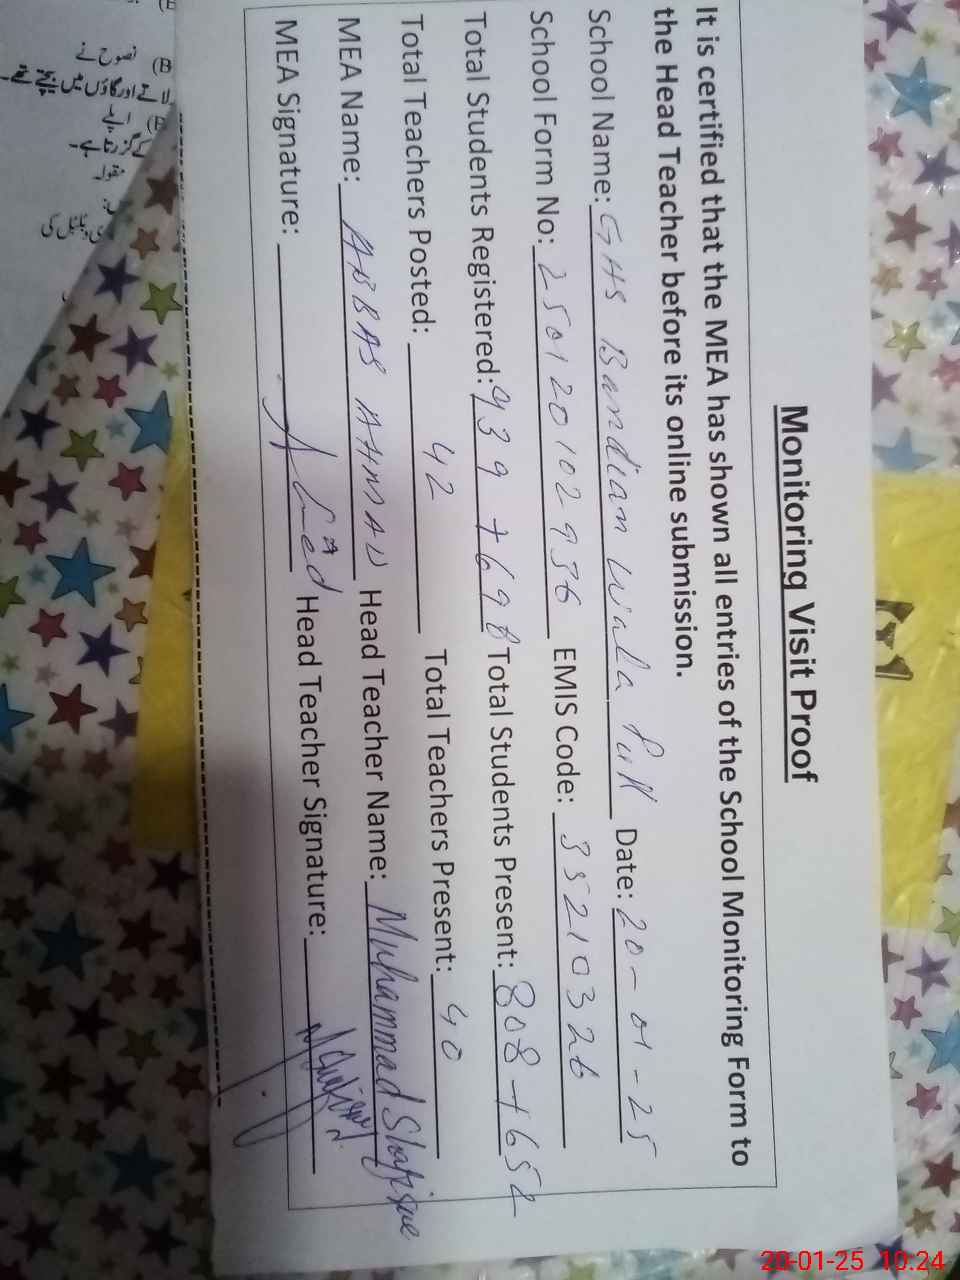 Monitoring Visit Proof
It is certified that the MEA has shown all entries of the School Monitoring Form to
the Head Teacher before its online submission.
School Name: GHS Bandian Wala Pull Date: 20-01-25
School Form No: 250120102936 EMIS Code: 35210326
Total Students Registered: 939 + 698 Total Students Present: 808 + 652
Total Teachers Posted: 42 Total Teachers Present: 40
MEA Name: ABBAS AHMAD Head Teacher Name: Muhammad Shafique
MEA Signature: Head Teacher Signature:
نصوح نے
لاتے اور گاؤں میں بیچتے تھے۔
کے گزرتا ہے۔
20-01-25 10:24